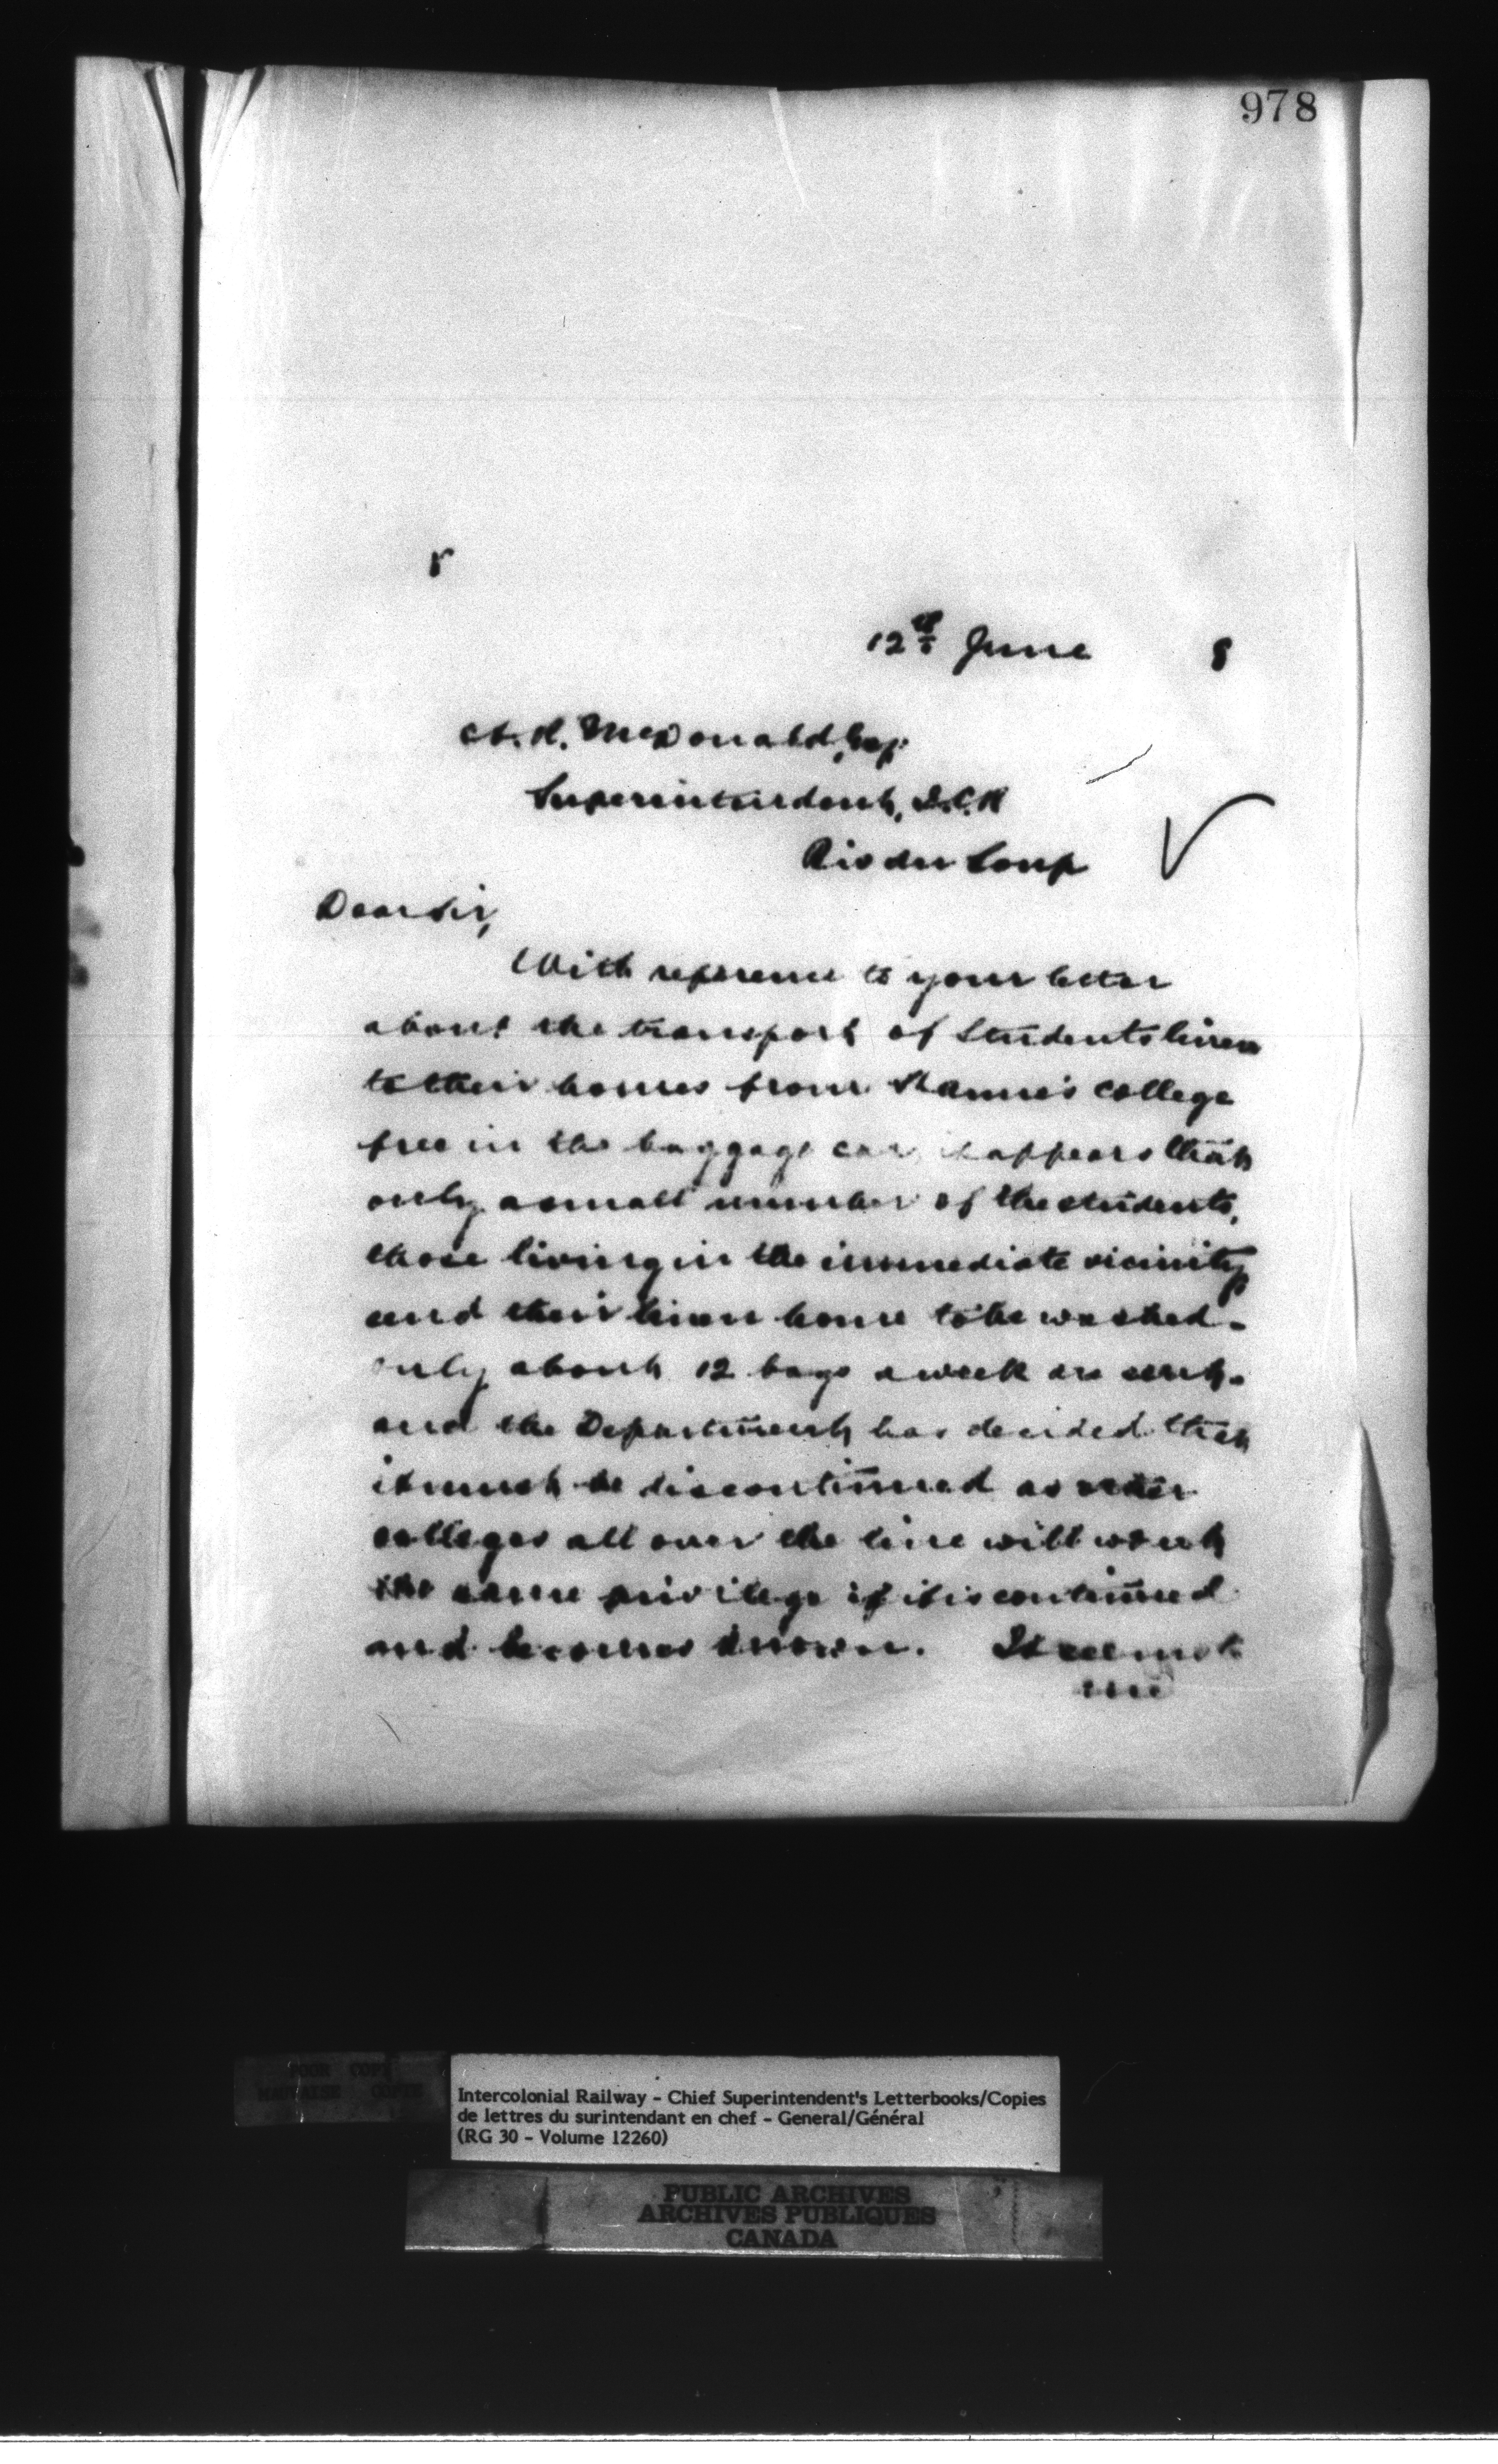 978
r
12th June 8
A. R. McDonald, Esq.
Superintendent, I.C.R
Riv du Loup
Dear Sir,
With reference to your letter
about the transport of Students linen
to their homes from St Anne's College
free in the baggage car, it appears that
only a small number of the students,
those living in the immediate vicinity
send their linen home to be washed.
Only about 12 bags a week are sent.
and the Department has decided that
it must be discontinued as other
colleges all over the line will want
the same privilege if it is continued
and becomes known. It seems to
me
POOR COPY
MAUVAISE COPIE
Intercolonial Railway - Chief Superintendent's Letterbooks/Copies
de lettres du surintendant en chef - General/Général
(RG 30 - Volume 12260)
PUBLIC ARCHIVES
ARCHIVES PUBLIQUES
CANADA